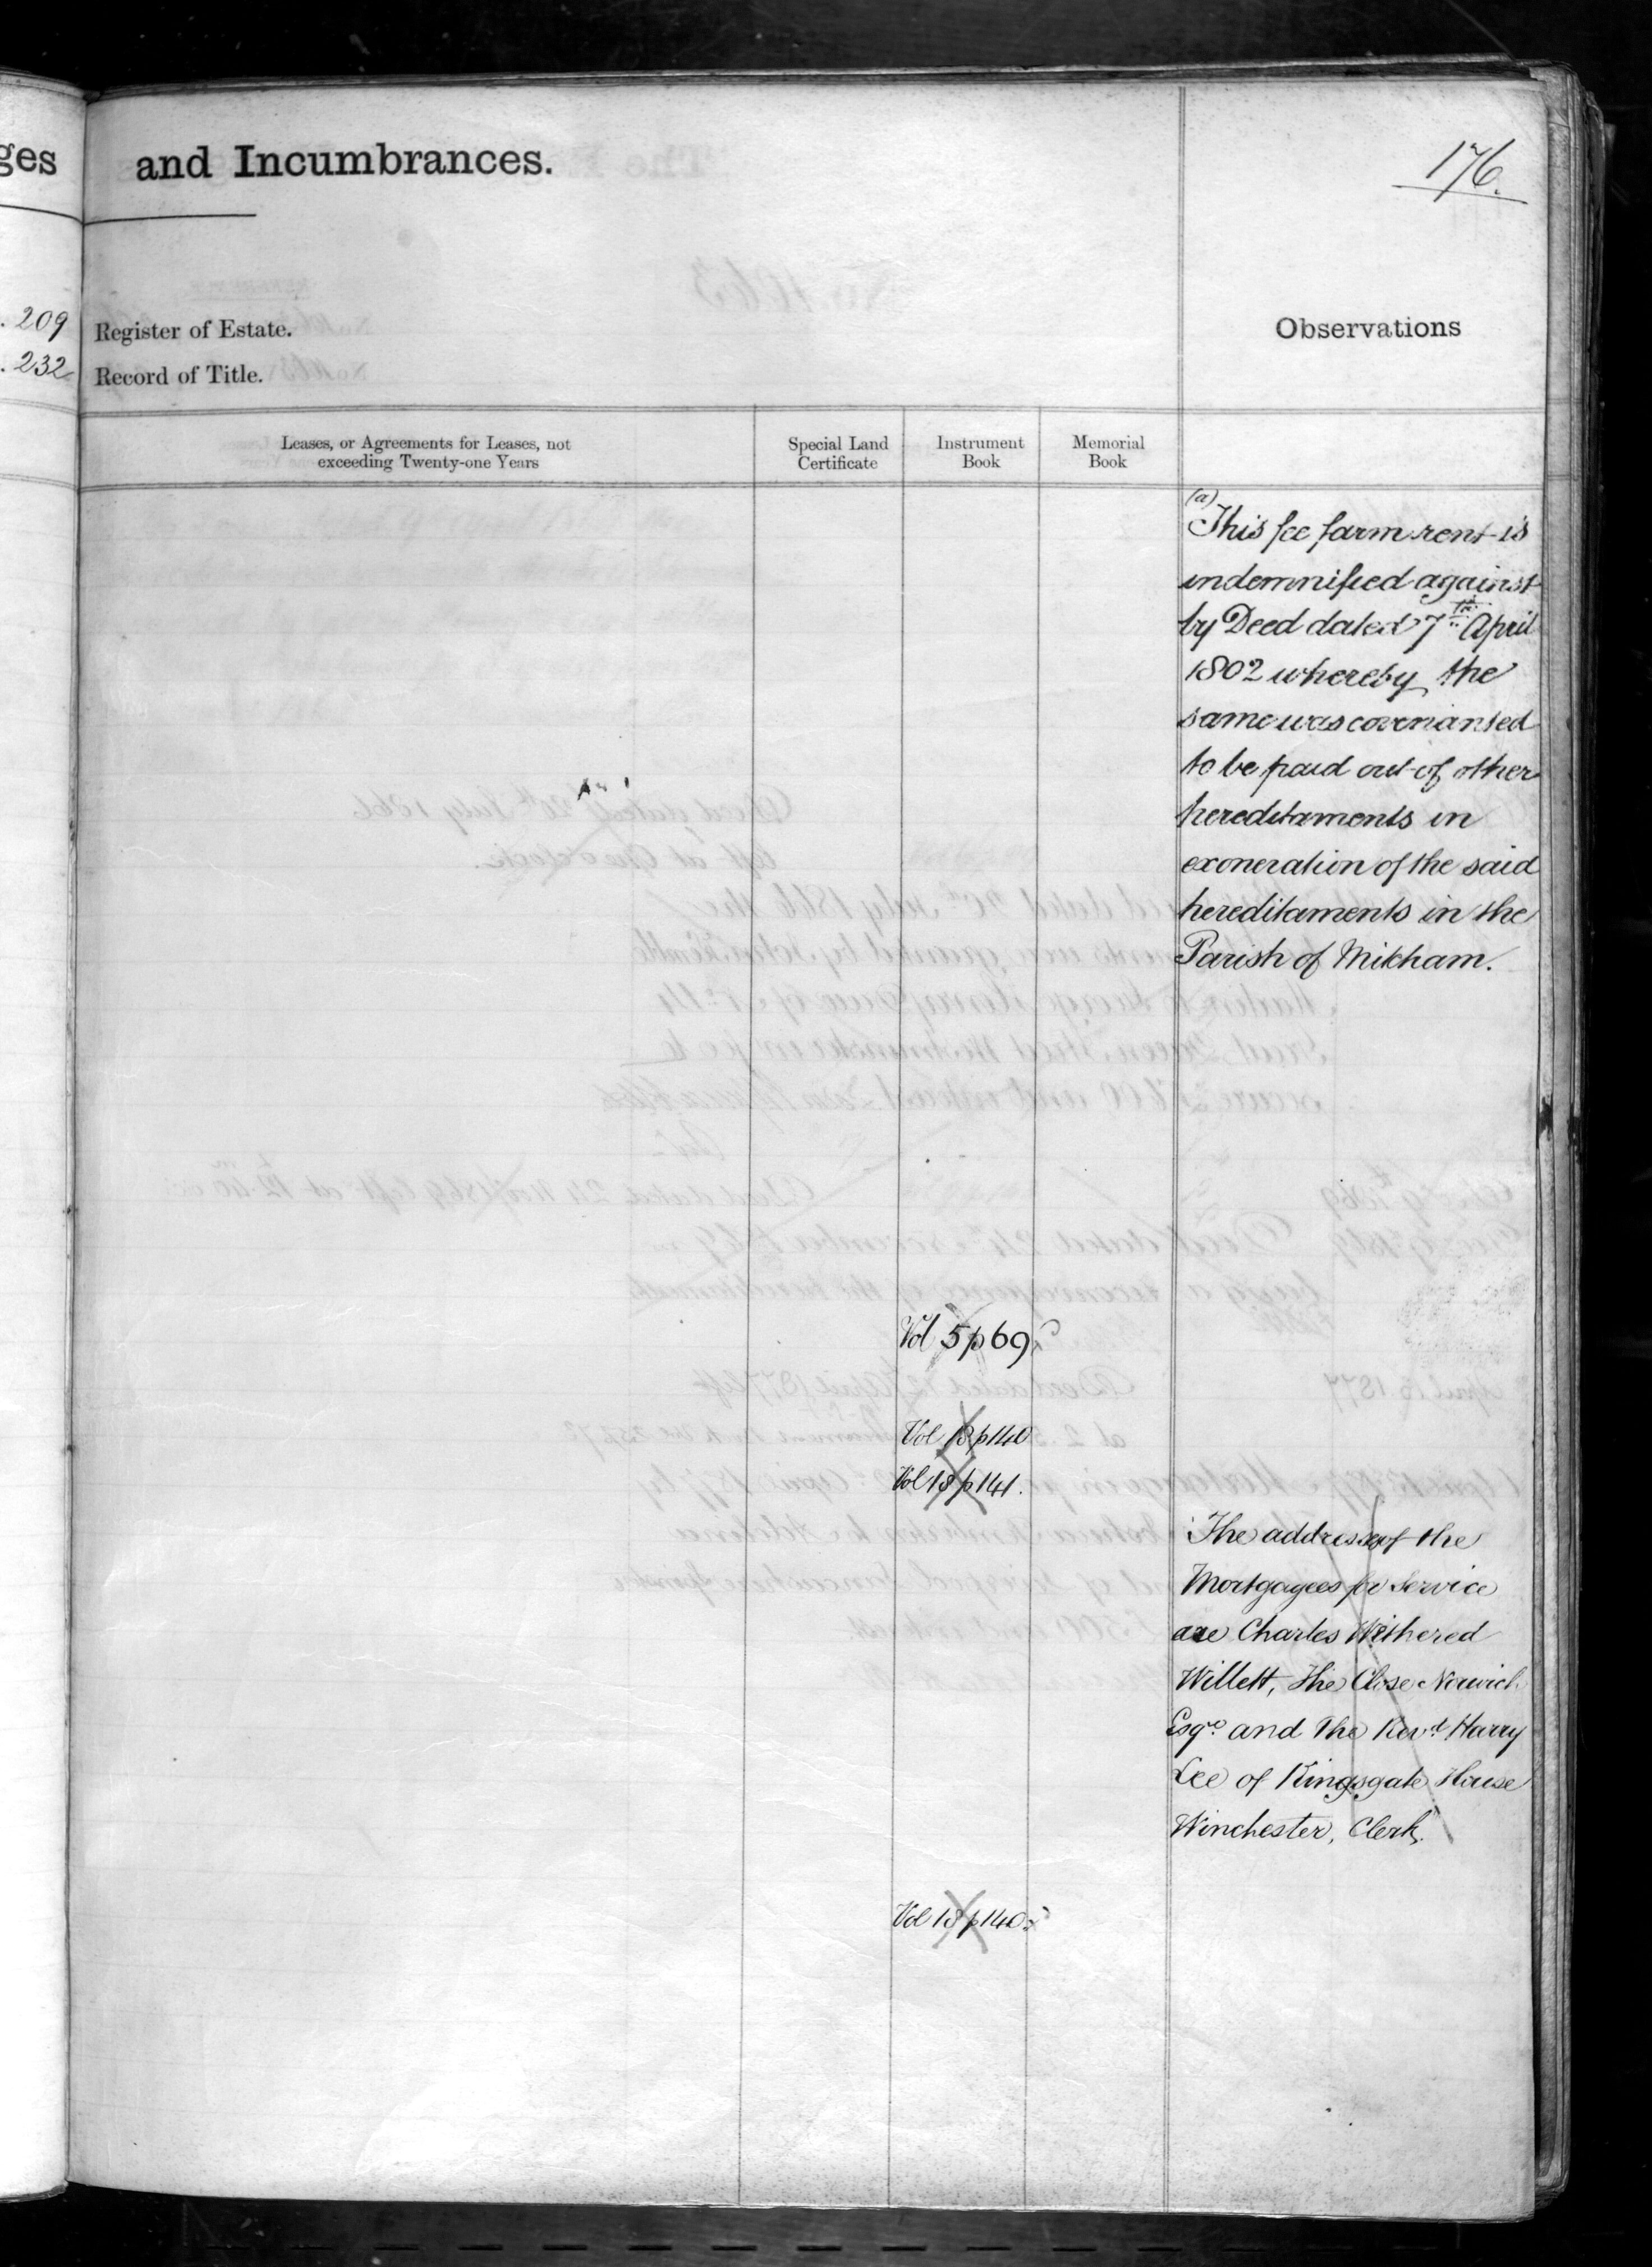 ges
and Incumbrances.
176.
. 209
Register of Estate.
. 232
Record of Title.
Observations
Leases, or Agreements for Leases, not
exceeding Twenty-one Years
Special Land
Certificate
Instrument
Book
Memorial
Book
(a)
This fee farm rent is
indemnified against
by Deed dated 7th April
1802 whereby the
same was covenanted
to be paid out of other
hereditaments in
exoneration of the said
hereditaments in the
Parish of Mitcham.
Vol 5 p 69
Vol 18 p 140
Vol 18 p 141.
The addresses of the
Mortgagees for Service
are Charles Wethered
Willett, The Close Norwich
Esqre. and The Revd. Harry
Lee of Kingsgate House
Winchester, Clerk.
Vol 18 p 140